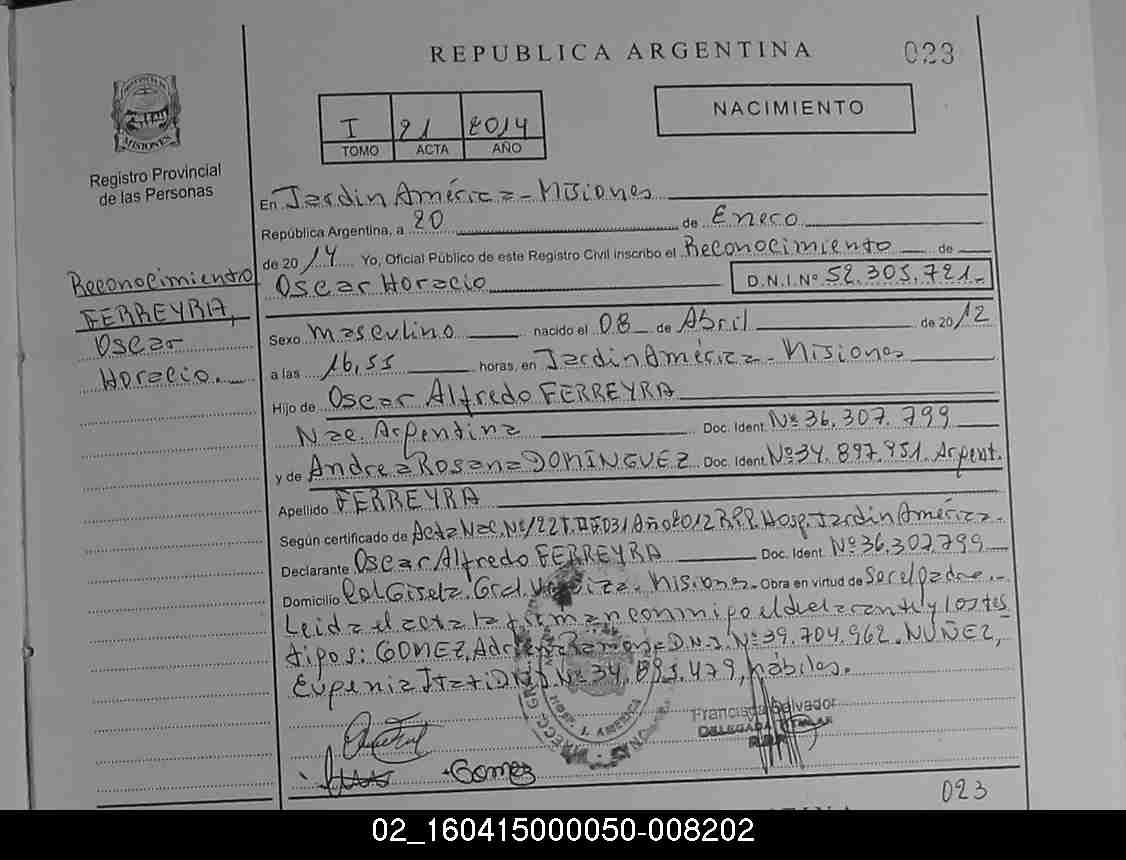 REPUBLICA ARGENTINA
023
NACIMIENTO
I 21 2014
TOMO ACTA AÑO
MISIONES
Registro Provincial
de las Personas
En Jardin América - Misiones
República Argentina, a 20 de Enero
de 2014 Yo, Oficial Público de este Registro Civil inscribo el Reconocimiento de
Oscar Horacio D.N.I.Nº 52.305.721-
Reconocimiento
FERREYRA,
Oscar
Horacio.
Sexo Masculino nacido el 08 de Abril de 2012
a las 16,55 horas, en Jardin América - Misiones
Hijo de Oscar Alfredo FERREYRA
Nac. Argentina Doc. Ident. Nº 36.307.799
y de Andrea Rosana DOMINGUEZ Doc. Ident. Nº 34.897.951. Argent.
Apellido FERREYRA
Según certificado de Acta Nac. Nº 122 T. II F 031 Año 2012 R.P.P. Hosp. Jardin América.
Declarante Oscar Alfredo FERREYRA Doc. Ident. Nº 36.307.799
Domicilio Col Gisela. Gral Urquiza. Misiones. Obra en virtud de Ser el padre.
Leida el acta la firman conmigo el declarante y los tes
tigos: GOMEZ, Ramona D.N.I. Nº 39.704.962. NUÑEZ,
Eugenia Itati D.N.I. Nº 34. .479, hábiles.
Francisca Salvador
DELEGADA TITULAR
HOSP. J. AMERICA
Gomez
023
02_160415000050-008202